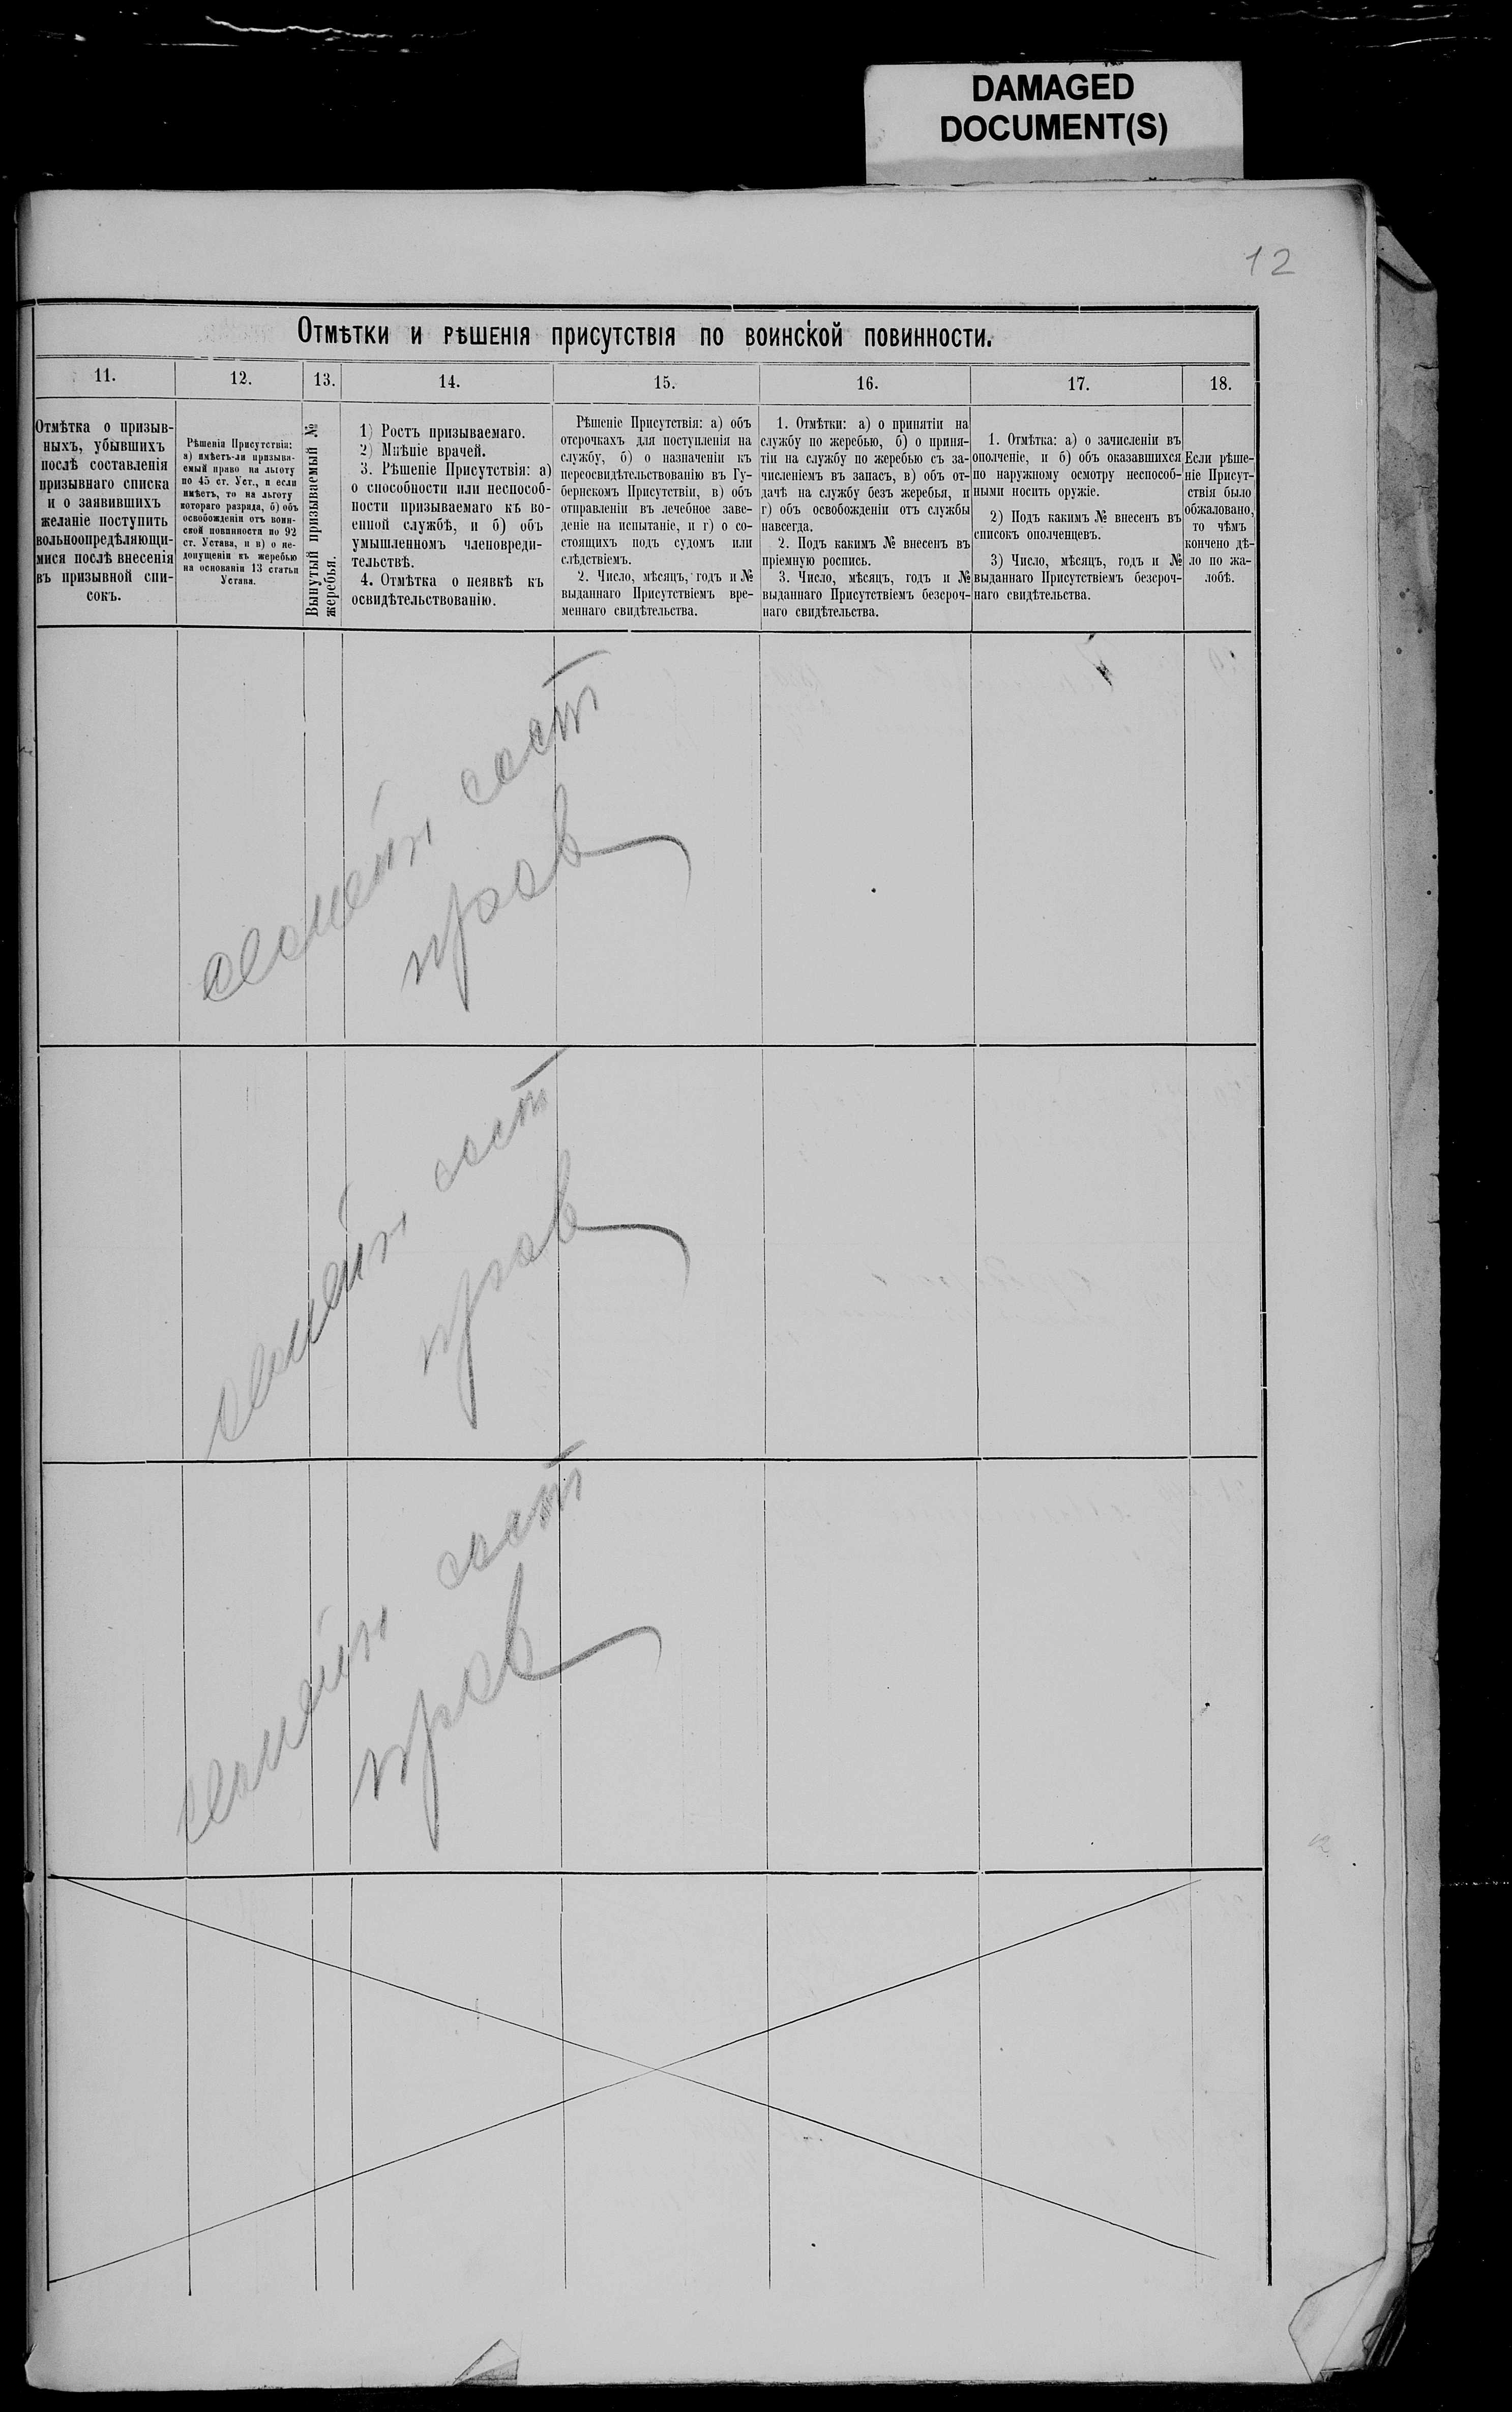 DAMAGED
DOCUMENT(S)
12
Отмѣтки и рѣшенія присутствія по воинской повинности.
11.
12.
13.
14.
15.
16.
17.
18.
Отмѣтка о призыв-
ныхъ, убывшихъ
послѣ составленія
призывнаго списка
и о заявившихъ
желаніе поступить
вольноопредѣляющи-
мися послѣ внесенія
въ призывной спи-
сокъ.
Рѣшенія Присутствія:
а) имѣетъ-ли призыва-
емый право на льготу
по 45 ст. Уст., и если
имѣетъ, то на льготу
котораго разряда, б) объ
освобожденіи отъ воин-
ской повинности по 92
ст. Устава, и в) о не-
допущеніи къ жеребью
на основаніи 13 статьи
Устава.
Вынутый призываемый №
жеребья.
1) Ростъ призываемаго.
2) Мнѣніе врачей.
3. Рѣшеніе Присутствія: а)
о способности или неспособ-
ности призываемаго къ во-
енной службѣ, и б) объ
умышленномъ членовреди-
тельствѣ.
4. Отмѣтка о неявкѣ къ
освидѣтельствованію.
Рѣшеніе Присутствія: а) объ
отсрочкахъ для поступленія на
службу, б) о назначеніи къ
переосвидѣтельствованію въ Гу-
бернскомъ Присутствіи, в) объ
отправленіи въ лечебное заве-
деніе на испытаніе, и г) о со-
стоящихъ подъ судомъ или
слѣдствіемъ.
2. Число, мѣсяцъ, годъ и №
выданнаго Присутствіемъ вре-
меннаго свидѣтельства.
1. Отмѣтки: а) о принятіи на
службу по жеребью, б) о приня-
тіи на службу по жеребью съ за-
численіемъ въ запасъ, в) объ от-
дачѣ на службу безъ жеребья, и
г) объ освобожденіи отъ службы
навсегда.
2. Подъ какимъ № внесенъ въ
пріемную роспись.
3. Число, мѣсяцъ, годъ и №
выданнаго Присутствіемъ безсроч-
наго свидѣтельства.
1. Отмѣтка: а) о зачисленіи въ
ополченіе, и б) объ оказавшихся
по наружному осмотру неспособ-
ными носить оружіе.
2) Подъ какимъ № внесенъ въ
списокъ ополченцевъ.
3) Число, мѣсяцъ, годъ и №
выданнаго Присутствіемъ безсроч-
наго свидѣтельства.
Если рѣше-
ніе Присут-
ствія было
обжаловано,
то чѣмъ
кончено дѣ-
ло по жа-
лобѣ.
семейн сост
прав
семейн сост
прав
семейн сост
прав